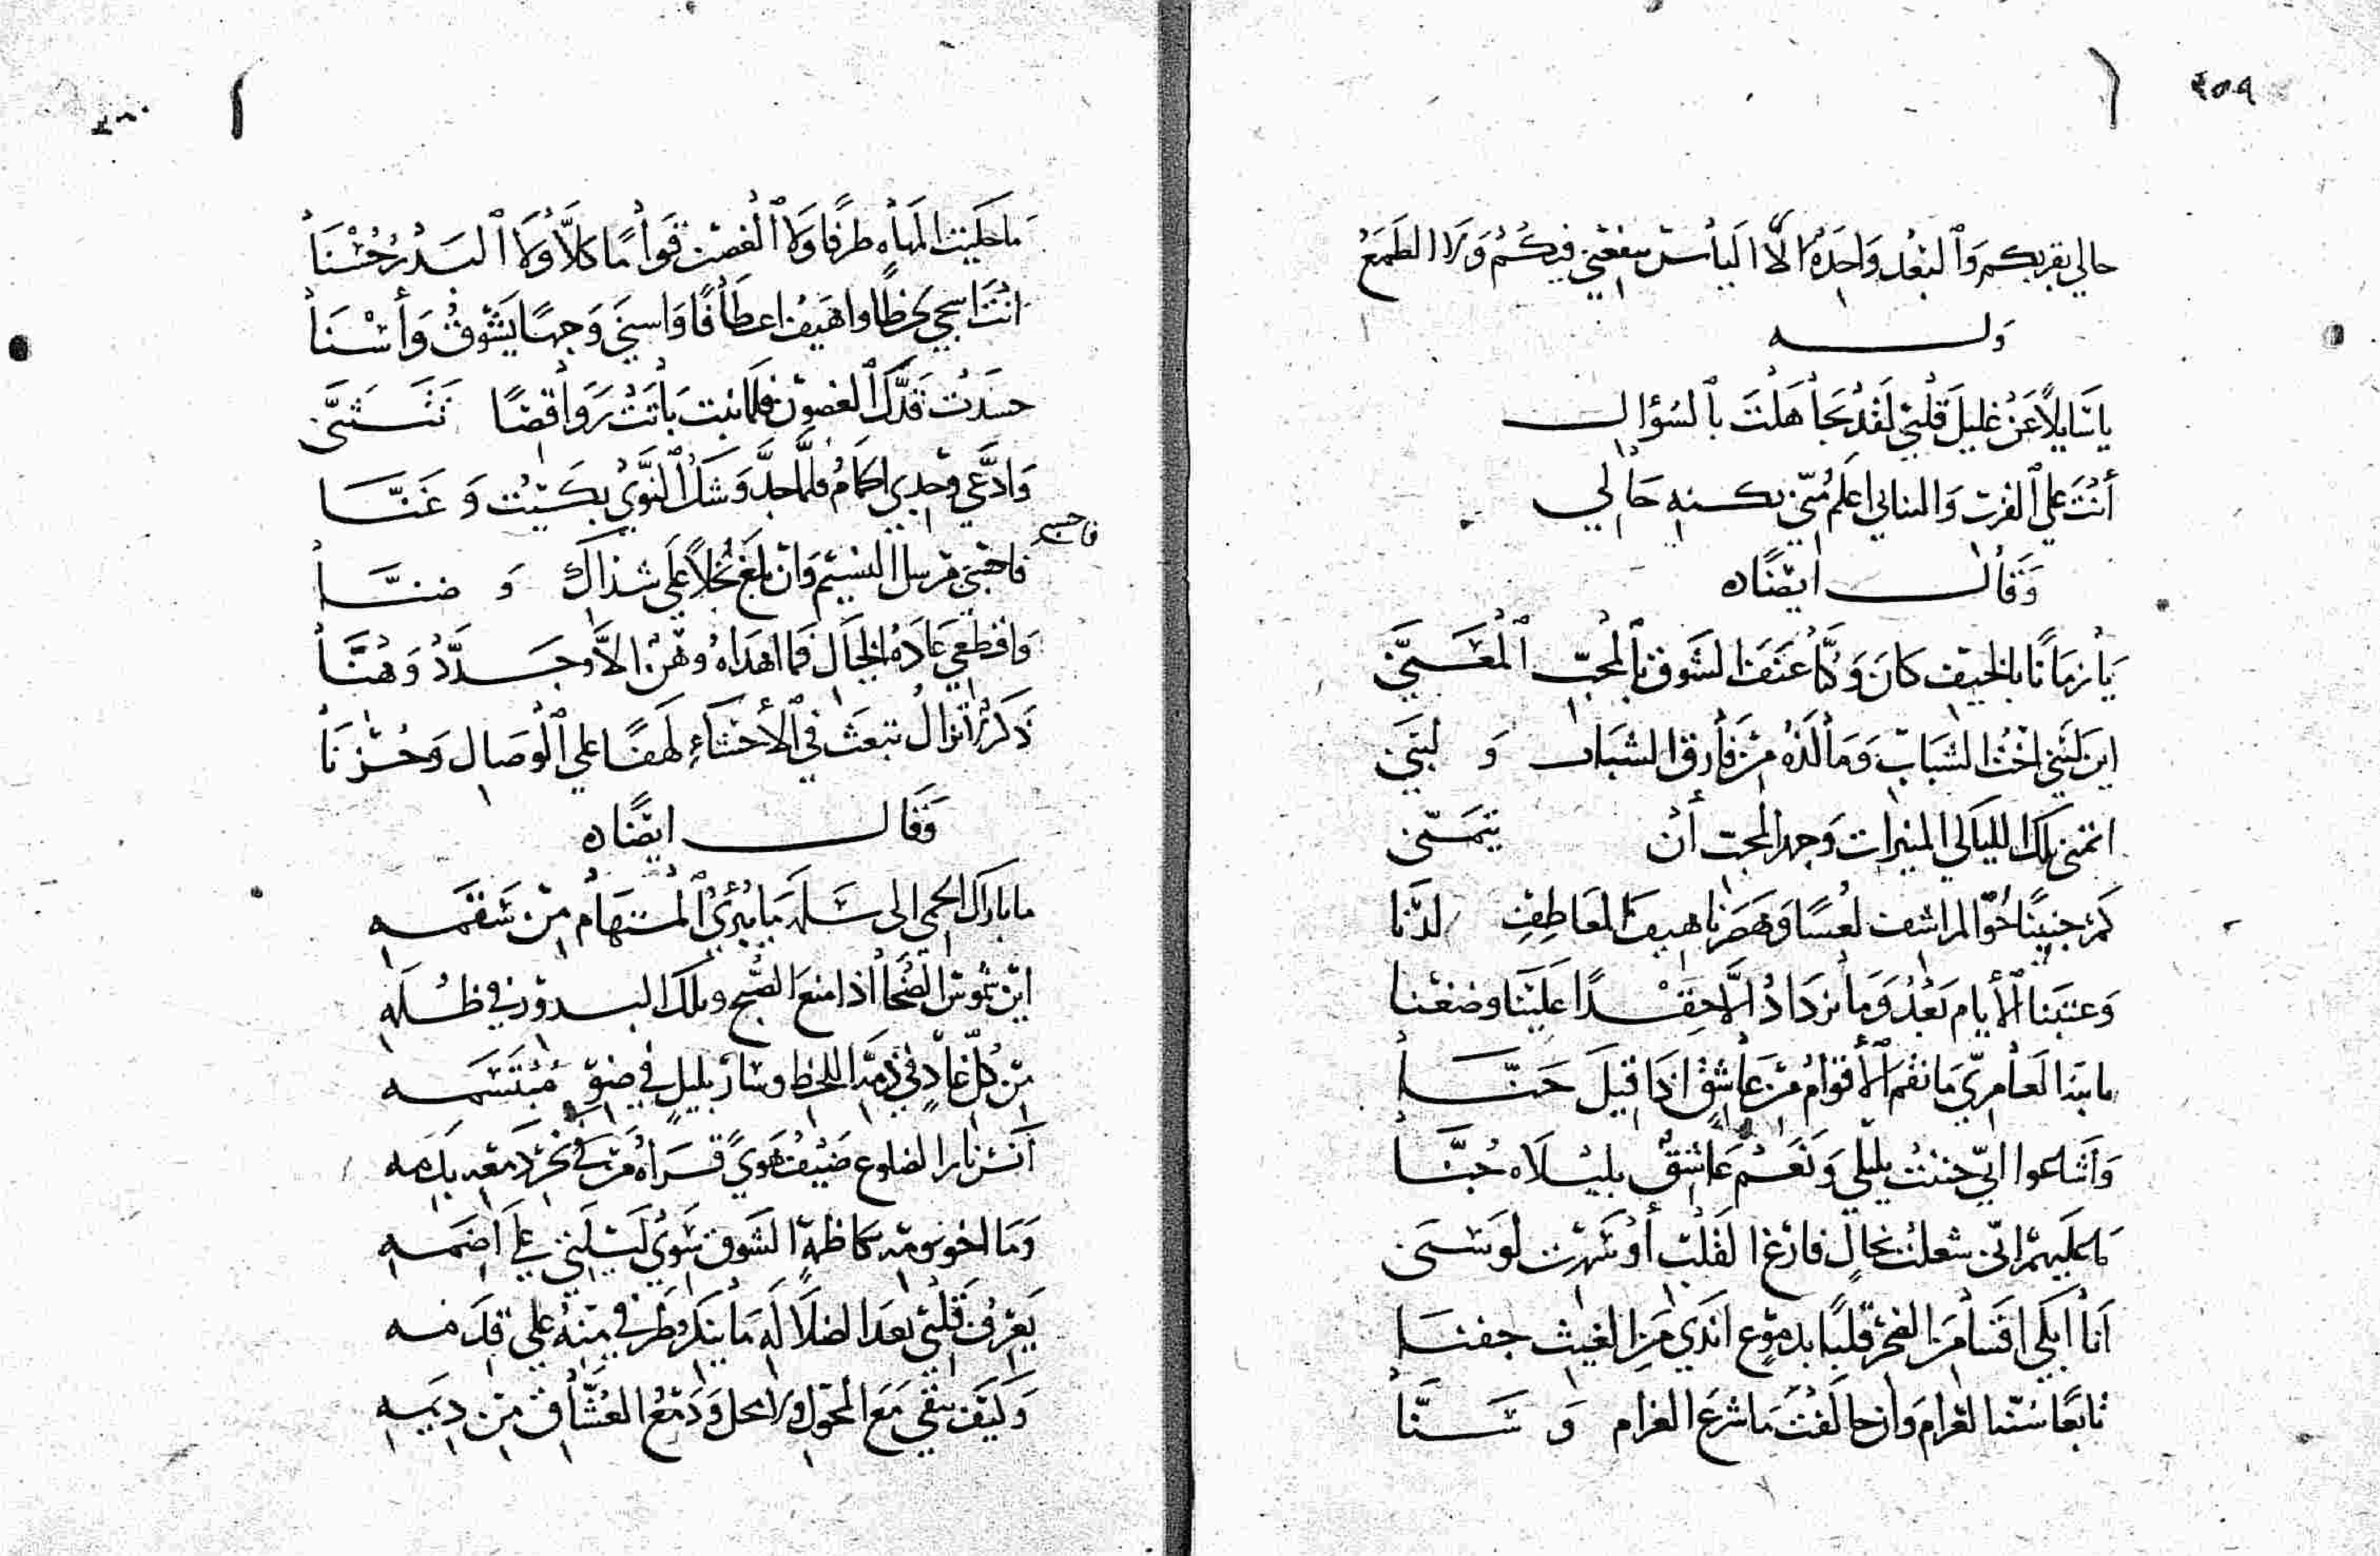 ٤٥٩
حالي بقربكم وَٱلبُعْد وَاحِدَةٌ لَا اليأس ينفعني فيكُمْ وَلَا الطَمَعُ
وَلـــه
يا سَايلاً عَنْ غليل قلبي لَقَدْ تجاهَلْتَ بٱلسُؤال
أنْتَ على ٱلقرب وَالتنائي اعلم مِنّي بكنه حَالي
وَقَالـــ ايضًا ه
يَا زمَانًا بالخيف كانَ وَكنَّا عَنَفَ الشَوق بٱلمُحبّ ٱلمُعَنّى
اين لبني اخْتُ الشَبَابِ وَمَا لَذهُ مَنْ فَارق الشبَاب وَ لبنَى
اتمنى تلك الليَالي المنيرات وَجهد المحبّ أنْ يتمَنّى
كَمْ جنينَا حُوّ المراشف لعُسًا وَهَصَرنا هيف المعَاطِفِ لدْنا
وَعتبنا ٱلأيام بَعْدُ وَمَا تزدَادُ الَّا حِقْدًا عَليْنَا وضغْنا
ما بنَدا لعَامِريّ مَا نقمَ ٱلأقوامُ مِنْ عَاشِقٍ اذَا قيلَ حَنّا
وَاشاعوا انّي جننْتُ بليْلي وَنَعَمْ عَاشِقٌ بليْلَاه جُنّا
مَا عَليهمْ انّي شغلتُ بخالٍ فارْغ القَلْبِ أوْ سَهرْت لوَسْنَى
أنا ابكي اقسَا مِنَ الصَخر قلبًا بدمُوعٍ اندَي مَنِ الغيث جفنا
تابعًا سُنّة الغَرام وَان خالَفْتُ مَا شرعَ الغرام وَ سَنّا
ما حكَيتِ المهَاه طرفًا وَلا ٱلغصْن قوَامًا كلّا وَلا ٱلبَدْرُ حُسْنَا
انتَ اسجي لحظًا واهيَفُ اعطافًا وَاسنَى وَجهًا يَشُوقُ وَأسْنَا
حسَدَتْ قدَّك ٱلغصُون فلمَا بنت بَاتَتْ رَوَاقِصًا تَتَثنَّى
وَادَّعى وَجدي الحمَامُ فلَمَّا جدَّ وَشكُ ٱلنَّوَي بكَيْتُ وَ غَنّا
فاحبسي
فاحبَي مُرسل النسيْم وَان بلغ بخلاً عَلى شذاك وَ ضنّا
وَاقطعي عَادَةُ الخيَال فما اهدَاهُ وهْن الّا وجَدّدُ وَهْنَّا
ذكرٌ لا تزالُ تبعثُ في ٱلأحشاءِ لهفًا على ٱلوصَال وَحُزنَا
وَقَالـــ ايضًا ه
ما بارق الحمى الى سَلمه مَا يُبْرِئُ ٱلمستهَامُ مِنْ سَقَمه
اينَ شمُوسُ الضُحَا اذا متعَ الصُبح وتلك البدوْر في ظُلَمه
مِن كُلّ غادٍ في ذمّة اللحظ وسَارِ بليلٍ في ضوّ مُبتَسَمه
آنسَ نار الضلوع ضَيْفُ هَويً قرَاهُ مَنْ في نحر دَمعه بدَمه
وَمَا اخو نومِه كاظمَة الشَوق سِوَي لَيْلَتي علَى اضَمه
يَعْرِفُ قلبي بعَد الضلَالَهِ مَا ينكر طَرفي مِنْهُ علي قِدَمه
وَكَيفَ يبقي مَعَ المحُولِ وَالمحل وَدَمْعُ العُشّاقِ مِنْ دِيَمِه